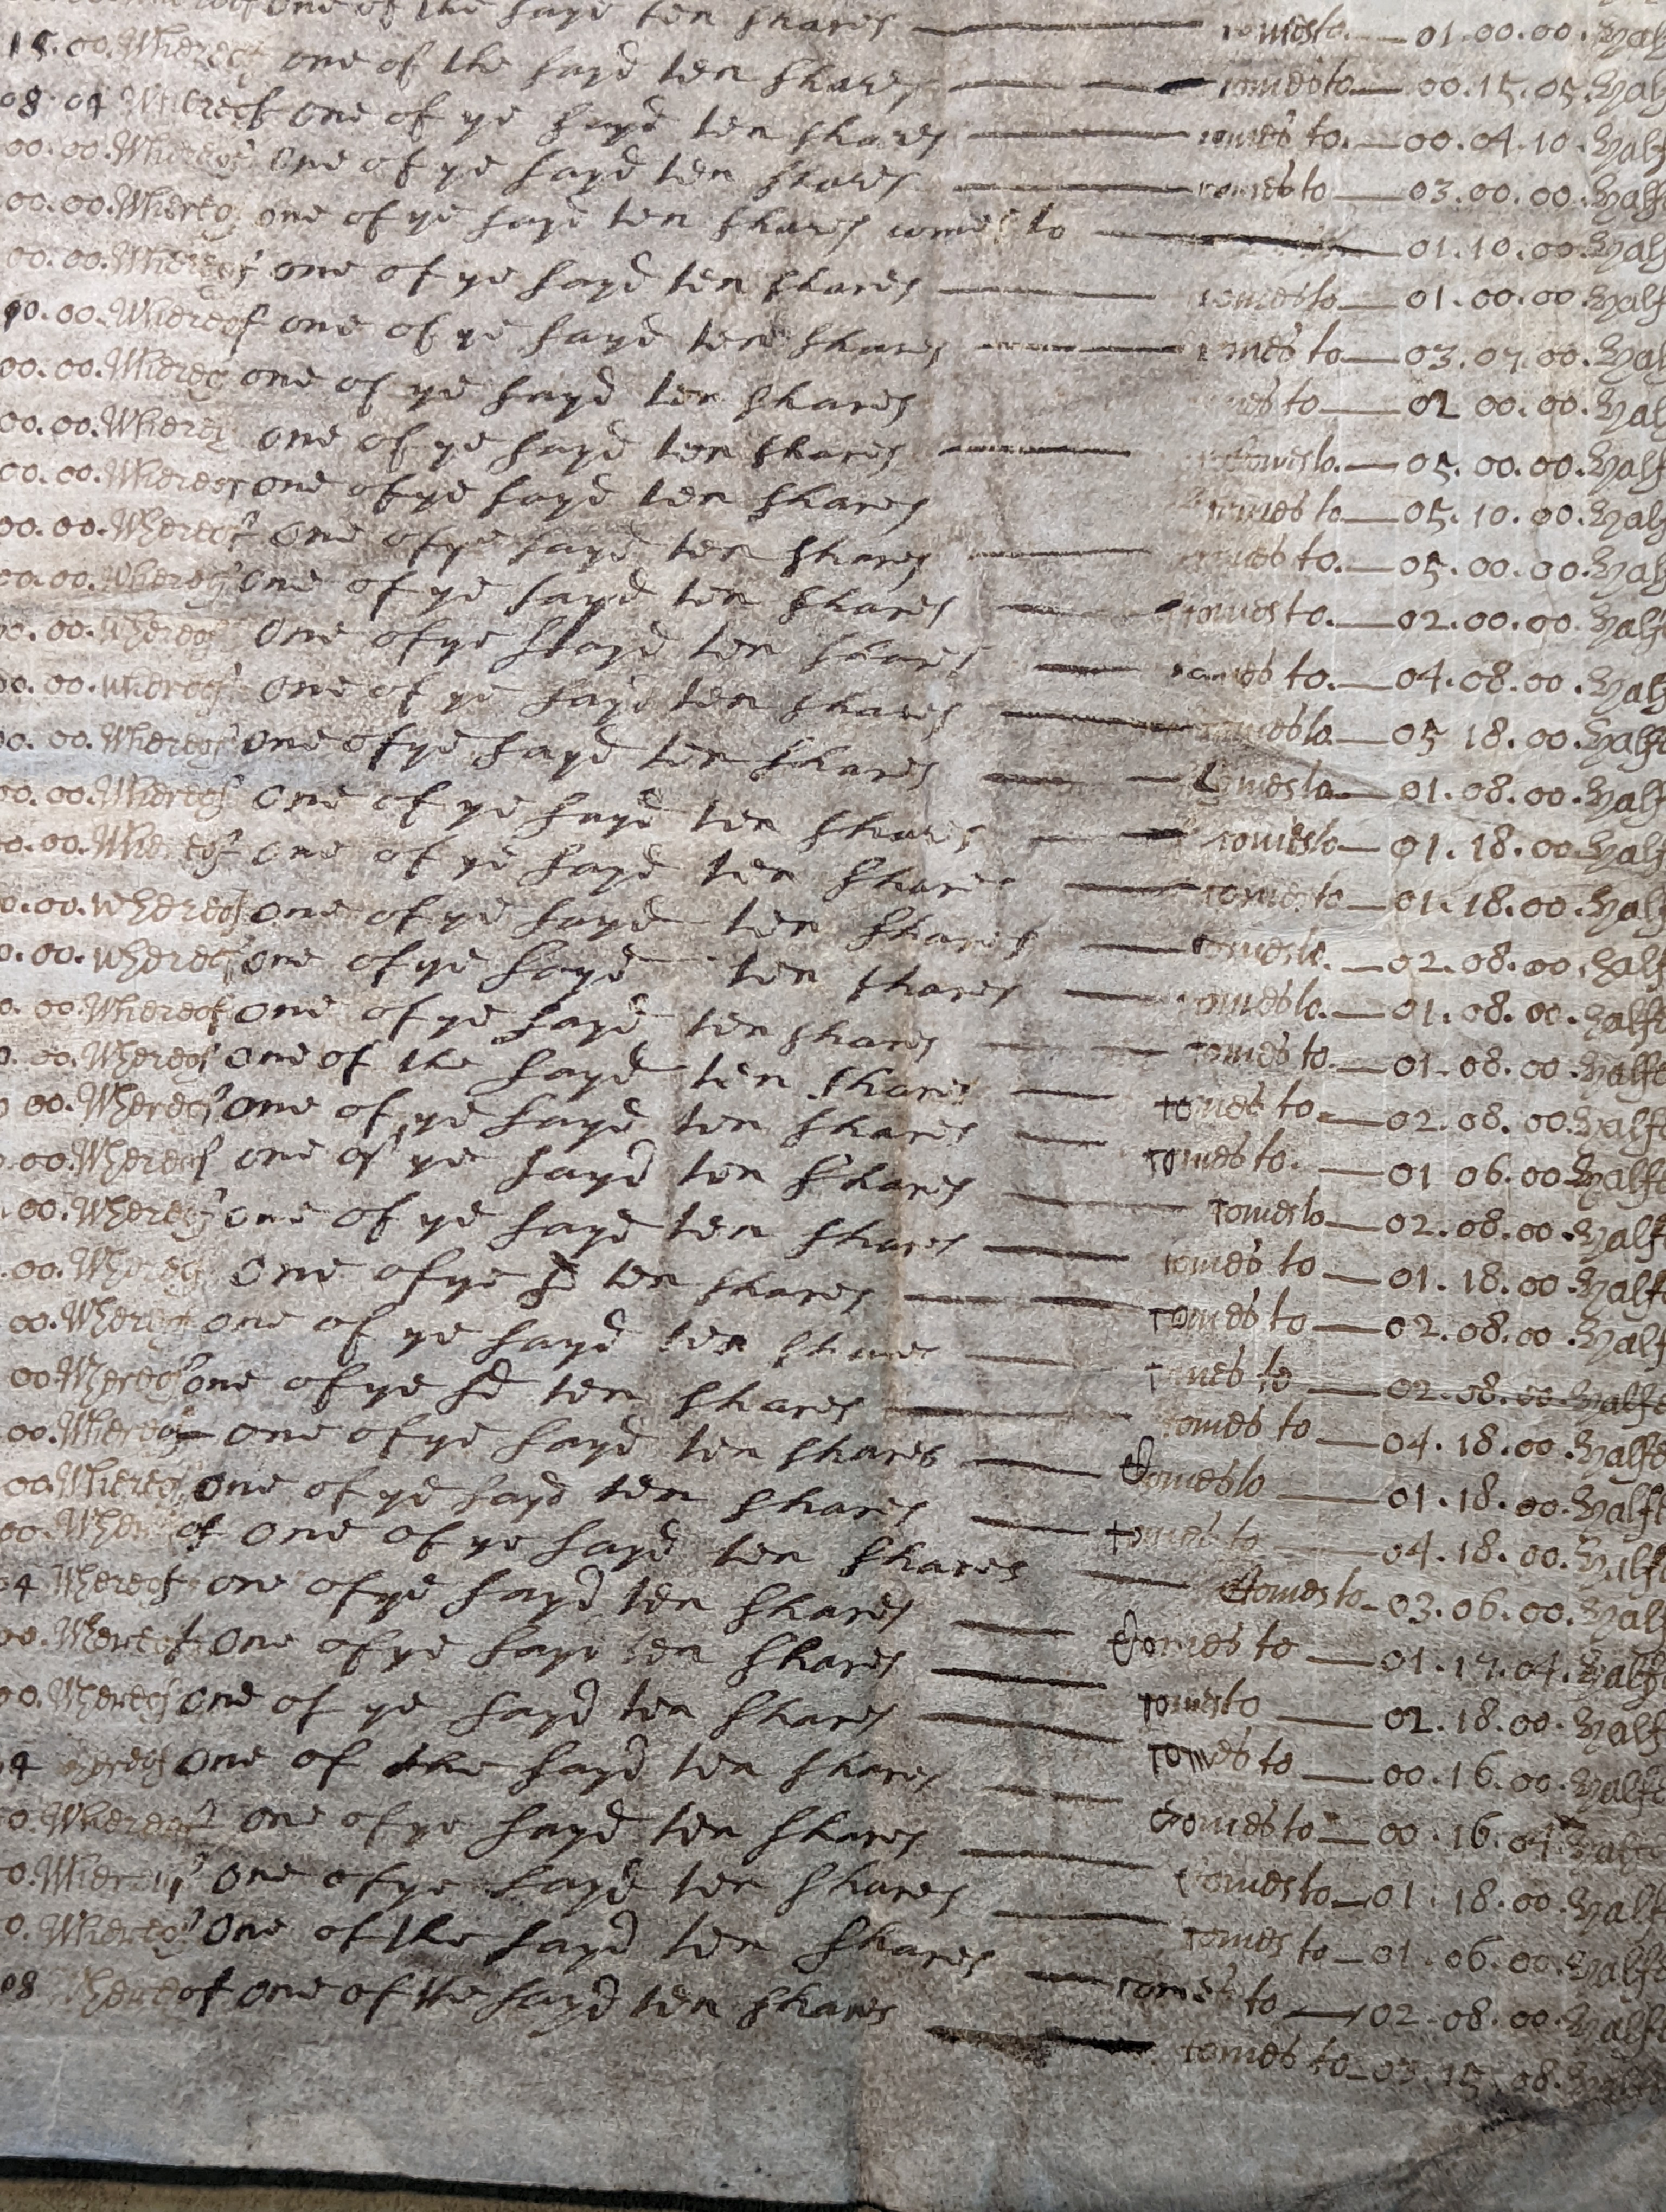 one of the sayd ten shares — comes to — 01.00.00. half
15.00. Whereof one of the sayd ten shares — comes to — 00.15.05. half
08 04 Whereof one of ye sayd ten shares — comes to. — 00.04.10. half
00.00. Whereof one of ye sayd ten shares — comes to — 03.00.00. half
00.00. Whereof one of ye sayd ten shares comes to — 01.10.00. half
00.00. Whereof one of ye sayd ten shares — comes to — 01.00.00 half
10.00. Whereof one of ye sayd ten shares — comes to — 03.07.00. half
00.00. Whereof one of ye sayd ten shares comes to — 02 00.00. half
00.00. Whereof one of ye sayd ten shares — comes to. — 05.00.00. half
00.00. Whereof one of ye sayd ten shares comes to — 05.10.00. half
00.00. Whereof one of ye sayd ten shares — comes to. — 05.00.00. half
00.00. Whereof one of ye sayd ten shares — comes to. — 02.00.00. half
00.00. Whereof one of ye sayd ten shares — comes to. — 04.08.00. half
00.00. Whereof one of ye sayd ten shares — comes to — 05 18.00. half
00.00. Whereof one of ye sayd ten shares — comes to — 01.08.00. half
00.00. Whereof one of ye sayd ten shares — comes to — 01.18.00. half
00.00. Whereof one of ye sayd ten shares — comes to — 01.18.00. half
0.00. Whereof one of ye sayd ten shares — comes to. — 02.08.00. half
0.00. Whereof one of ye sayd ten shares — comes to. — 01.08.00. half
0.00. Whereof one of ye sayd ten shares — comes to. — 01.08.00. half
0.00. Whereof one of the sayd ten shares — comes to — 02.08.00. half
00. Whereof one of ye sayd ten shares — comes to. — 01 06.00 half
.00. Whereof one of ye sayd ten shares — comes to — 02.08.00. half
.00. Whereof one of ye sayd ten shares — comes to — 01.18.00. half
.00. Whereof one of ye sd ten shares — comes to — 02.08.00. half
00. Whereof one of ye sayd ten shares — comes to — 02.08.00. half
00 Whereof one of ye sd ten shares — comes to — 04.18.00. half
.00. Whereof one of ye sayd ten shares — Comes to — 01.18.00. half
00. Whereof one of ye sayd ten shares — comes to — 04.18.00. half
00. Whereof one of ye sayd ten shares — Comes to — 03.06.00. half
04 Whereof one of ye sayd ten shares — Comes to — 01.17.04. half
00. Whereof one of ye sayd ten shares — comes to — 02.18.00. half
00. Whereof one of ye sayd ten shares — comes to — 00.16.00. half
4 Whereof one of the sayd ten shares — Comes to — 00.16.04 half
0. Whereof one of ye sayd ten shares — comes to — 01.18.00. half
0. Whereof one of ye sayd ten shares — comes to — 01.06.00. half
0. Whereof one of the sayd ten shares — comes to — 02.08.00. half
08 Whereof one of the sayd ten shares — comes to — 03.15.08. half